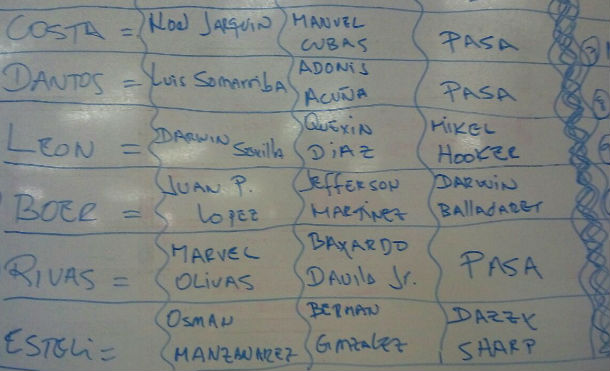 COSTA = Noel Jarquin MANUEL CUBAS PASA
DANTOS = Luis Somarriba ADONIS ACUÑA PASA
LEON = DARWIN Sevilla QUEXIN DiAZ MIKEL HOOKER
BOER = JUAN P. LOPEZ JEFFERSON MARTiNEZ DARWIN BALLADARES
RIVAS = MARVEL OLIVAS BAYARDO Davila Jr. PASA
ESTELi = OSMAN MANZANAREZ BERMAN GONZALEZ DAZZY SHARP